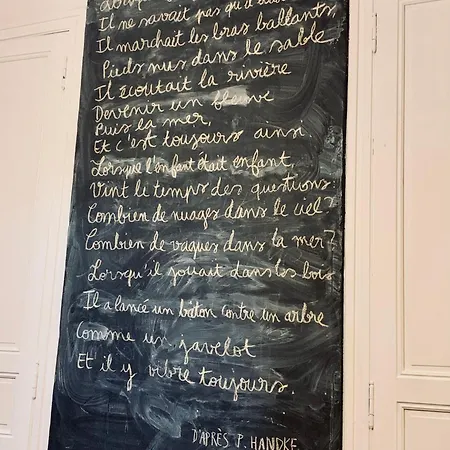 Il ne savait pas qu'il
Il marchait les bras ballants,
Pieds nus dans le sable
Il écoutait la rivière
Devenir un fleuve
Puis la mer,
Et c'est toujours ainsi
Lorsque l'enfant était enfant,
Vint le temps des questions:
Combien de nuages dans le ciel?
Combien de vagues dans la mer?
Lorsqu'il jouait dans les bois
Il a lancé un bâton contre un arbre
Comme un javelot
Et il y vibre toujours.
D'APRÈS P. HANDKE